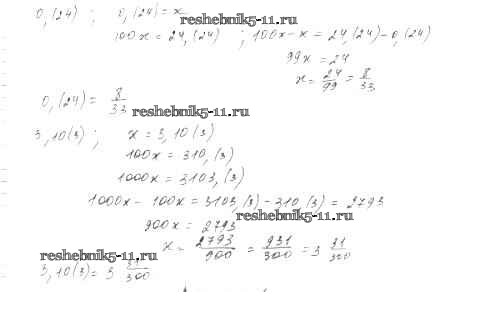 0,(24) ; 0,(24) = x
reshebnik5-11.ru
100x = 24,(24) ; 100x - x = 24,(24) - 0,(24)
99x = 24
x = 24/99 = 8/33
0,(24) = 8/33
reshebnik5-11.ru
3,10(3) ; x = 3,10(3)
100x = 310,(3)
1000x = 3103,(3)
1000x - 100x = 3103,(3) - 310,(3) = 2793
reshebnik5-11.ru
900x = 2793
x = 2793/900 = 931/300 = 3 31/300
reshebnik5-11.ru
3,10(3) = 3 31/300